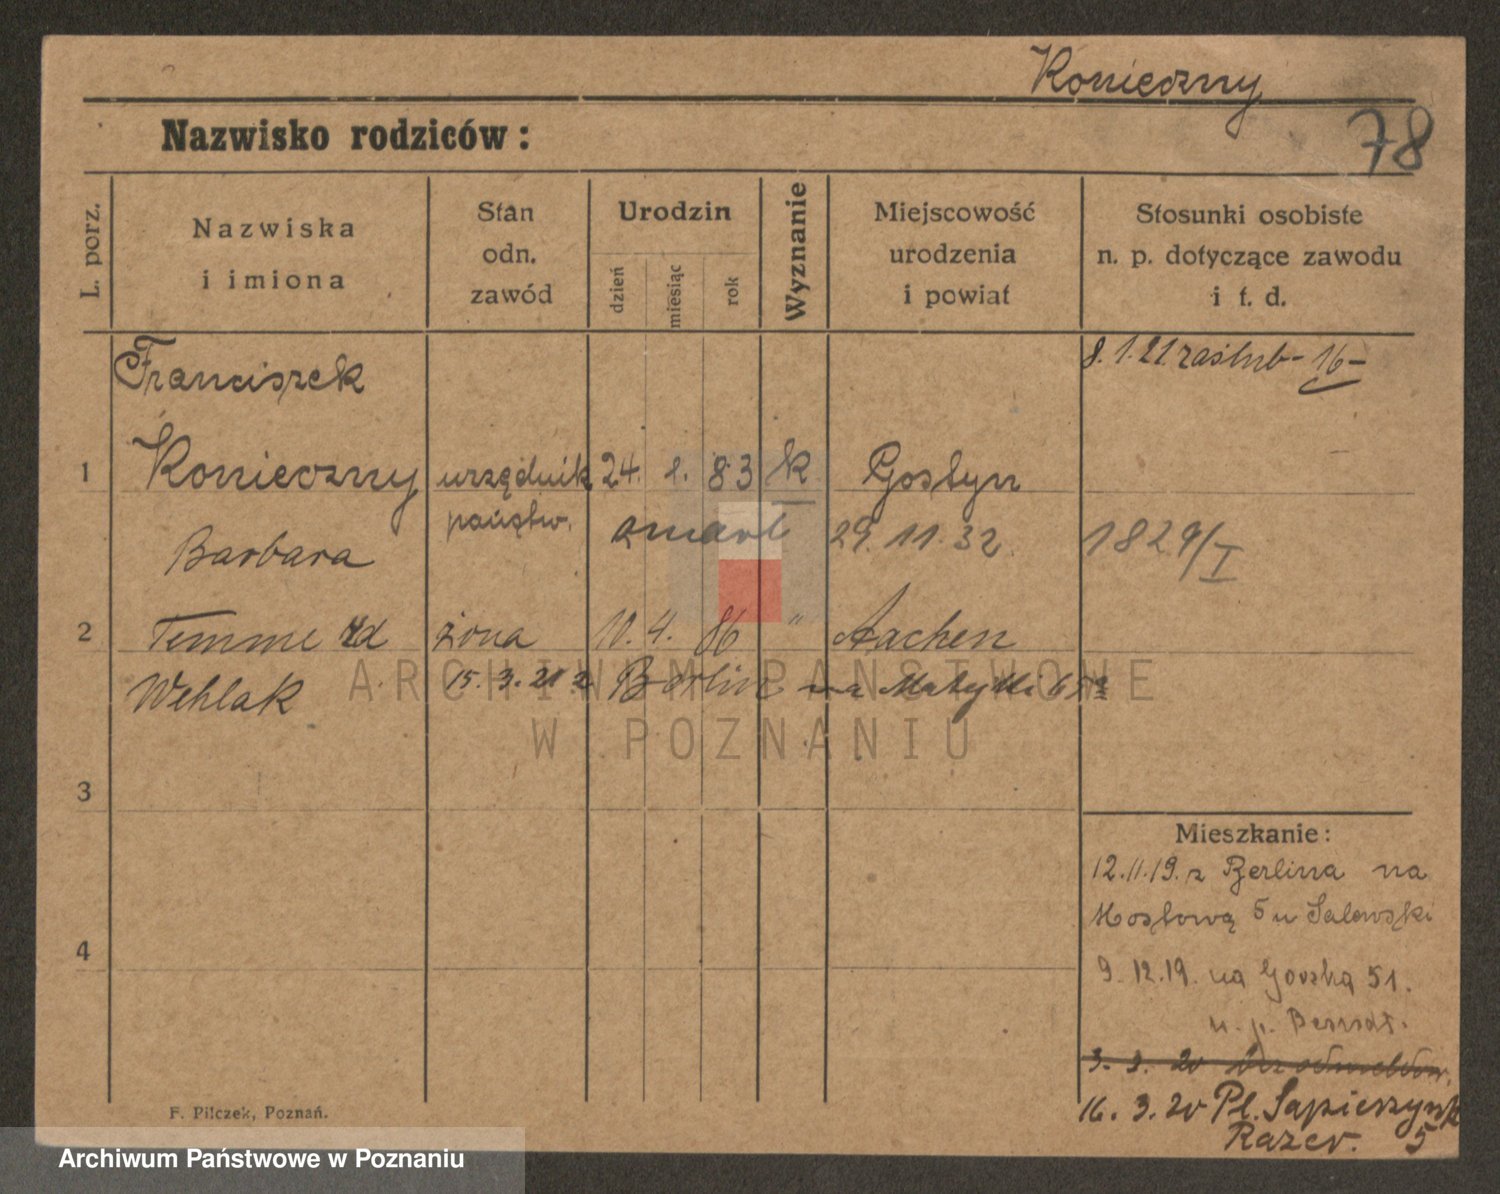 Konieczny
78
Nazwisko rodziców:
L. porz.
Nazwiska
i imiona
Stan
odn.
zawód
Urodzin
dzień
miesiąc
rok
Wyznanie
Miejscowość
urodzenia
i powiat
Stosunki osobiste
n. p. dotyczące zawodu
i t. d.
Franciszek
8. 1. 21 zaślub- 16-
1 Konieczny urzędnik 24. 83 k Gostyn
państw. zmarł 29. 11. 32
Barbara
2 Temme żona 10. 4. 86 " Aachen
Wehlak 15. 3. 21 z Berlina na
ARCHIWUM PAŃSTWOWE
W POZNANIU
3
Mieszkanie:
12.11.19. z Berlina na
Mostową 5 u Salewski
4
9. 12. 19. na 51.
u. p.
16. 3. 20 Pl. Sapieżyńsk
5
F. Pilczek, Poznań.
Archiwum Państwowe w Poznaniu